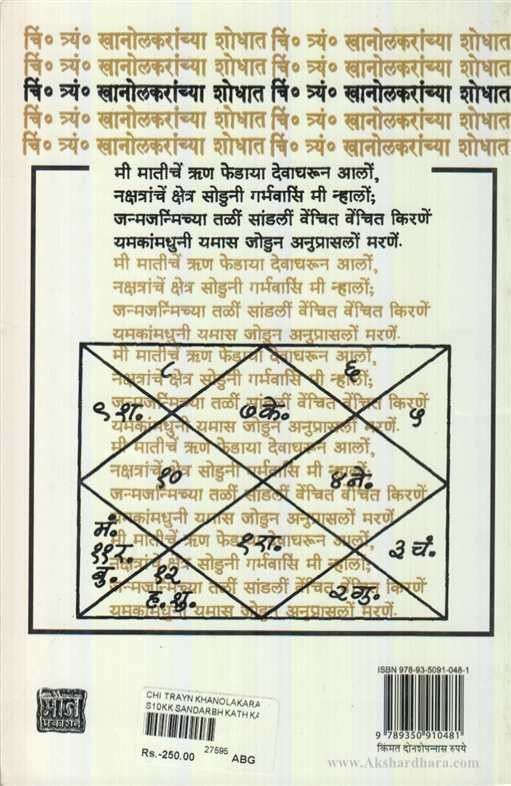 चिं० त्र्यं० खानोलकरांच्या शोधात चिं० त्र्यं० खानोलकरांच्या शोधात
चिं० त्र्यं० खानोलकरांच्या शोधात चिं० त्र्यं० खानोलकरांच्या शोधात
चिं० त्र्यं० खानोलकरांच्या शोधात चिं० त्र्यं० खानोलकरांच्या शोधात
चिं० त्र्यं० खानोलकरांच्या शोधात चिं० त्र्यं० खानोलकरांच्या शोधात
चिं० त्र्यं० खानोलकरांच्या शोधात चिं० त्र्यं० खानोलकरांच्या शोधात
मी मातीचें ऋण फेडाया देवाघरून आलों,
नक्षत्रांचें क्षेत्र सोडुनी गर्भवासिं मी न्हालों;
जन्मजन्मिंच्या तळीं सांडलीं वेंचित वेंचित किरणें
यमकांमधुनी यमास जोडुन अनुप्रासलों मरणें.
मी मातीचें ऋण फेडाया देवाघरून आलों,
नक्षत्रांचें क्षेत्र सोडुनी गर्भवासिं मी न्हालों;
जन्मजन्मिंच्या तळीं सांडलीं वेंचित वेंचित किरणें
यमकांमधुनी यमास जोडुन अनुप्रासलों मरणें.
मी मातीचें ऋण फेडाया देवाघरून आलों,
नक्षत्रांचें क्षेत्र सोडुनी गर्भवासिं मी न्हालों;
जन्मजन्मिंच्या तळीं सांडलीं वेंचित वेंचित किरणें
यमकांमधुनी यमास जोडुन अनुप्रासलों मरणें.
मी मातीचें ऋण फेडाया देवाघरून आलों,
नक्षत्रांचें क्षेत्र सोडुनी गर्भवासिं मी न्हालों;
जन्मजन्मिंच्या तळीं सांडलीं वेंचित वेंचित किरणें
यमकांमधुनी यमास जोडुन अनुप्रासलों मरणें.
मी मातीचें ऋण फेडाया देवाघरून आलों,
नक्षत्रांचें क्षेत्र सोडुनी गर्भवासिं मी न्हालों;
जन्मजन्मिंच्या तळीं सांडलीं वेंचित वेंचित किरणें
यमकांमधुनी यमास जोडुन अनुप्रासलों मरणें.
८ ६
९ श. ७ के. ५
१० ४ ने.
मं.
११ र. १ रा. ३ चं.
बु. १२
ह. शु. २ गु.
ISBN 978-93-5091-048-1
9 789350 910481
किंमत दोनशेपन्नास रुपये
मौज
प्रकाशन
CHI TRAYN KHANOLAKARA
S10KK SANDARBH KATH KA
Rs.-250.00 27595 ABG
www.Akshardhara.com